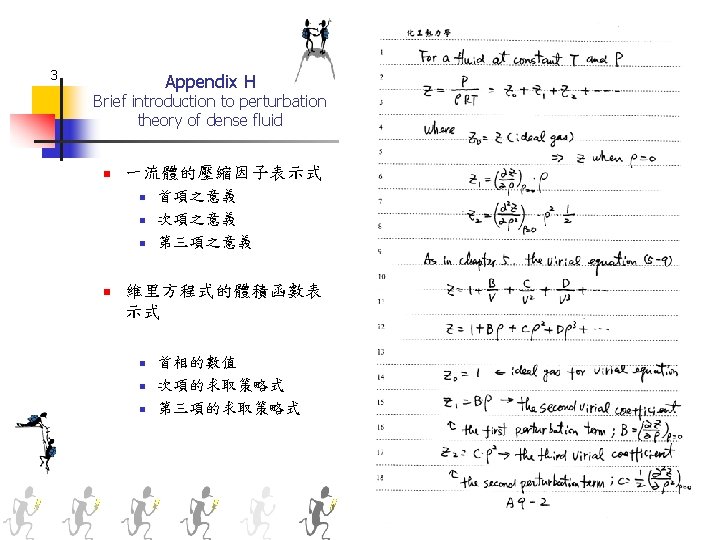 3
Appendix H
Brief introduction to perturbation
theory of dense fluid
一流體的壓縮因子表示式
首項之意義
次項之意義
第三項之意義
維里方程式的體積函數表
示式
首相的數值
次項的求取策略式
第三項的求取策略式
化工熱力學
1 For a fluid at constant T and P
2 Z = P/ρRT = Z₀ + Z₁ + Z₂ + ----
3
4 where Z₀ = Z (ideal gas)
5 ⇒ Z when ρ=0
6 Z₁ = (∂Z/∂ρ)ρ=0 · ρ
7 Z₂ = (∂²Z/∂ρ²)ρ=0 · ρ² · 1/2
8
9 As in chapter 5, the virial equation (5-9)
10 Z = 1 + B/V + C/V² + D/V³ + ...
11
12 Z = 1 + Bρ + Cρ² + Dρ³ + ...
13
14 Z₀ = 1 ← ideal gas for virial equation
15 Z₁ = Bρ → the second virial coefficient
16 the first perturbation term ; B = (∂Z/∂ρ)ρ=0
17 Z₂ = C·ρ² → the third virial coefficient
18 the second perturbation term ; C = 1/2 (∂²Z/∂ρ²)ρ=0
A9-2